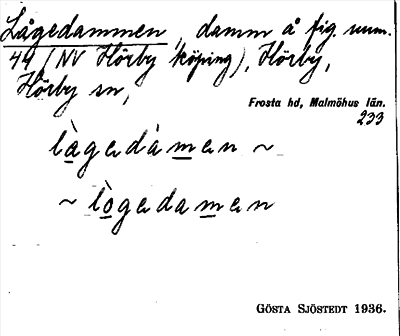 Lågedammen, damm å fig. num.
44 (NV Hörby köping), Hörby,
Hörby sn,
Frosta hd, Malmöhus län.
233
làgedàmen ~
~ lògedamen
GÖSTA SJÖSTEDT 1936.